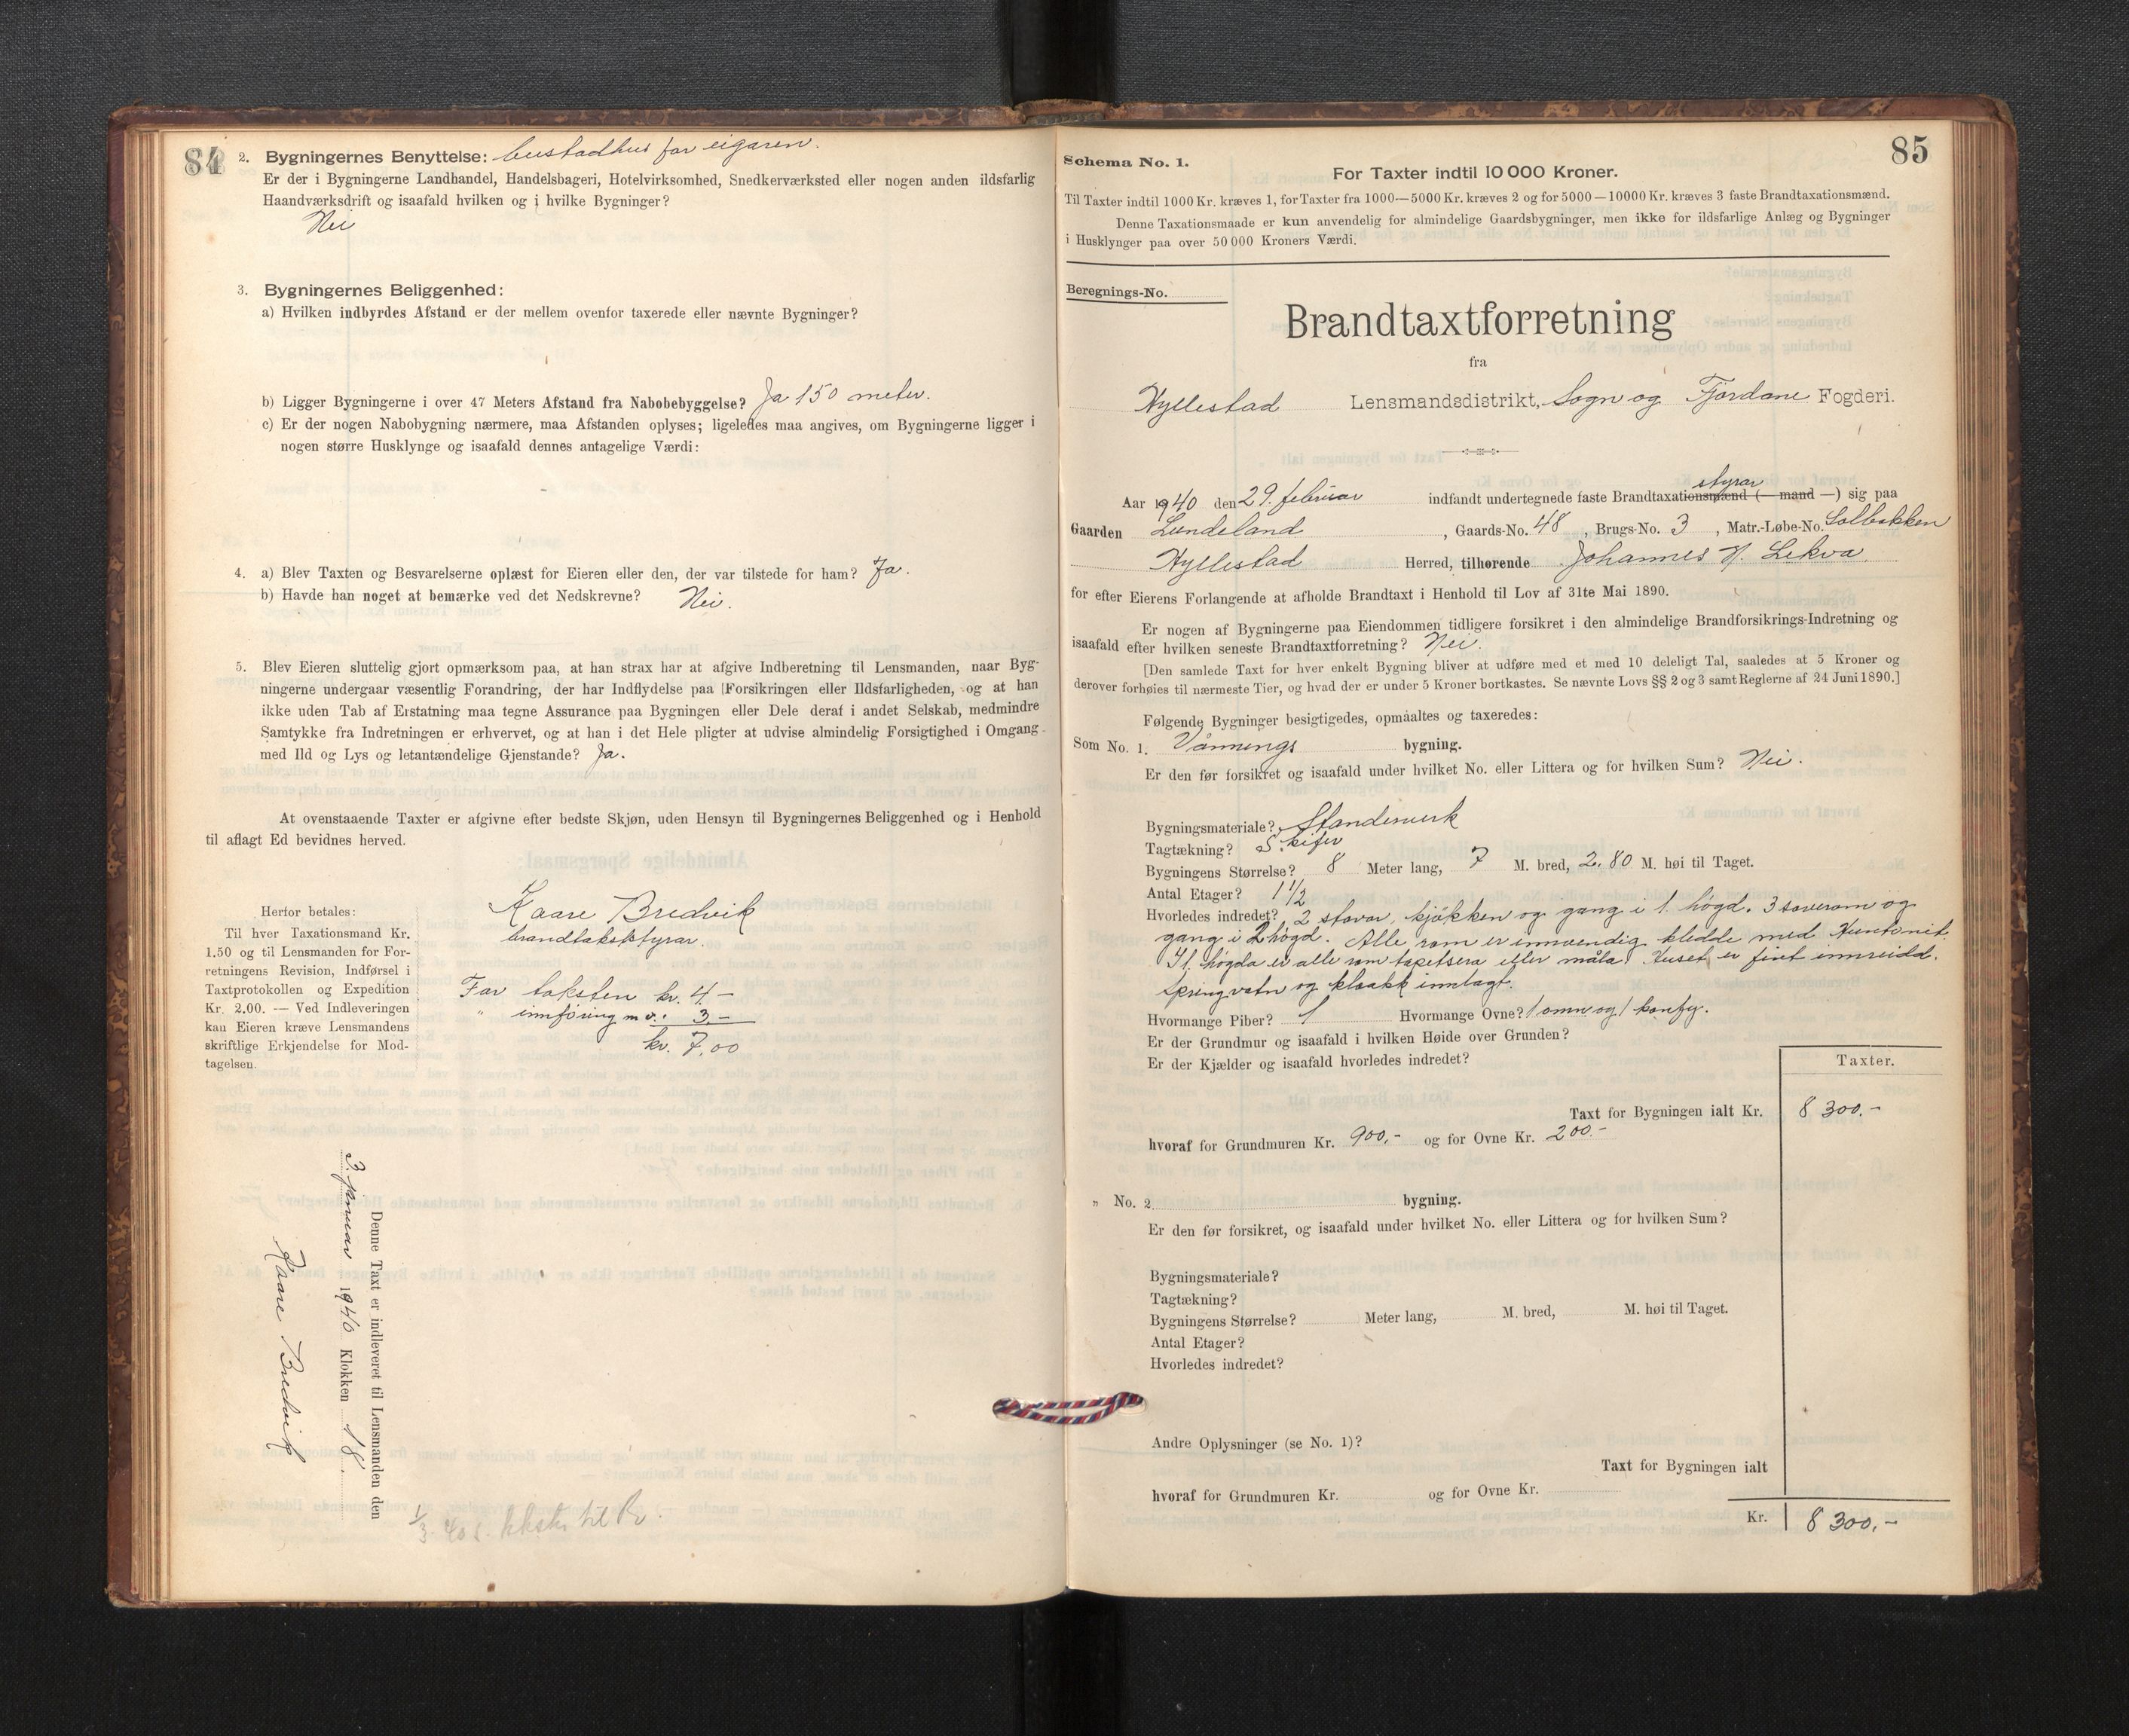 84
2. Bygningernes Benyttelse: bustadhus for eigaren.
Er der i Bygningerne Landhandel, Handelsbageri, Hotelvirksomhed, Snedkerværksted eller nogen anden ildsfarlig
Haandværksdrift og isaafald hvilken og i hvilke Bygninger?
Nei
3. Bygningernes Beliggenhed:
a) Hvilken indbyrdes Afstand er der mellem ovenfor taxerede eller nævnte Bygninger?
b) Ligger Bygningerne i over 47 Meters Afstand fra Nabobebyggelse? Ja 150 meter.
c) Er der nogen Nabobygning nærmere, maa Afstanden oplyses; ligeledes maa angives, om Bygningerne ligger i
nogen større Husklynge og isaafald dennes antagelige Værdi:
4. a) Blev Taxten og Besvarelserne oplæst for Eieren eller den, der var tilstede for ham? Ja.
b) Havde han noget at bemærke ved det Nedskrevne? Nei.
5. Blev Eieren sluttelig gjort opmærksom paa, at han strax har at afgive Indberetning til Lensmanden, naar Byg-
ningerne undergaar væsentlig Forandring, der har Indflydelse paa Forsikringen eller Ildsfarligheden, og at han
ikke uden Tab af Erstatning maa tegne Assurance paa Bygningen eller Dele deraf i andet Selskab, medmindre
Samtykke fra Indretningen er erhvervet, og at han i det Hele pligter at udvise almindelig Forsigtighed i Omgang
med Ild og Lys og letantændelige Gjenstande? Ja.
At ovenstaaende Taxter er afgivne efter bedste Skjøn, uden Hensyn til Bygningernes Beliggenhed og i Henhold
til aflagt Ed bevidnes herved.
Kaare Bredvik
brandtakstyrar.
Herfor betales:
Til hver Taxationsmand Kr.
1.50 og til Lensmanden for For-
retningens Revision, Indførsel i
Taxtprotokollen og Expedition
Kr. 2.00. — Ved Indleveringen
kan Eieren kræve Lensmandens
skriftlige Erkjendelse for Mod-
tagelsen.
For taksten kr. 4.-
" innføring m.v. " 3.-
kr. 7.00
Denne Taxt er indleveret til Lensmanden den
3. januar 1940 Klokken 18.
Kaare Bredvik
1/3. 40 s. til
85
Schema No. 1.
For Taxter indtil 10 000 Kroner.
Til Taxter indtil 1000 Kr. kræves 1, for Taxter fra 1000—5000 Kr. kræves 2 og for 5000—10000 Kr. kræves 3 faste Brandtaxationsmænd.
Denne Taxationsmaade er kun anvendelig for almindelige Gaardsbygninger, men ikke for ildsfarlige Anlæg og Bygninger
i Husklynger paa over 50 000 Kroners Værdi.
Beregnings-No.
Brandtaxtforretning
fra
Hyllestad Lensmandsdistrikt, Sogn og Fjordane Fogderi.
styrar
Aar 1940 den 29. februar indfandt undertegnede faste Brandtaxationsmænd (— mand —) sig paa
Gaarden Lundeland, Gaards-No. 48, Brugs-No. 3, Matr.-Løbe-No. Solbakken
Hyllestad Herred, tilhørende Johannes N. Lekva
for efter Eierens Forlangende at afholde Brandtaxt i Henhold til Lov af 31te Mai 1890.
Er nogen af Bygningerne paa Eiendommen tidligere forsikret i den almindelige Brandforsikrings-Indretning og
isaafald efter hvilken seneste Brandtaxtforretning? Nei.
[Den samlede Taxt for hver enkelt Bygning bliver at udføre med et med 10 deleligt Tal, saaledes at 5 Kroner og
derover forhøies til nærmeste Tier, og hvad der er under 5 Kroner bortkastes. Se nævnte Lovs §§ 2 og 3 samt Reglerne af 24 Juni 1890.]
Følgende Bygninger besigtigedes, opmaaltes og taxeredes:
Som No. 1. Vånnings bygning.
Er den før forsikret og isaafald under hvilket No. eller Littera og for hvilken Sum? Nei.
Bygningsmateriale? Standerverk
Tagtækning? Skifer
Bygningens Størrelse? 8 Meter lang, 7 M. bred, 2.80 M. høi til Taget.
Antal Etager? 1 1/2
Hvorledes indredet? 2 stovor, kjøkken og gang i 1. høgd. 3 soverom og
gang i 2 høgd. Alle rom er innvendig kledde med Huntonit.
I 1. høgda er alle rom tapetsera eller måla. Huset er fint innreidd.
Springvatn og kloakk innlagt.
Hvormange Piber? 1 Hvormange Ovne? 1 omn og 1 komfyr.
Er der Grundmur og isaafald i hvilken Høide over Grunden?
Er der Kjælder og isaafald hvorledes indredet?
Taxter.
Taxt for Bygningen ialt Kr. 8 300.-
hvoraf for Grundmuren Kr. 900,- og for Ovne Kr. 200.-
" No. 2 bygning.
Er den før forsikret, og isaafald under hvilket No. eller Littera og for hvilken Sum?
Bygningsmateriale?
Tagtækning?
Bygningens Størrelse? Meter lang, M. bred, M. høi til Taget.
Antal Etager?
Hvorledes indredet?
Andre Oplysninger (se No. 1)?
Taxt for Bygningen ialt
hvoraf for Grundmuren Kr. og for Ovne Kr.
Kr. 8 300,-